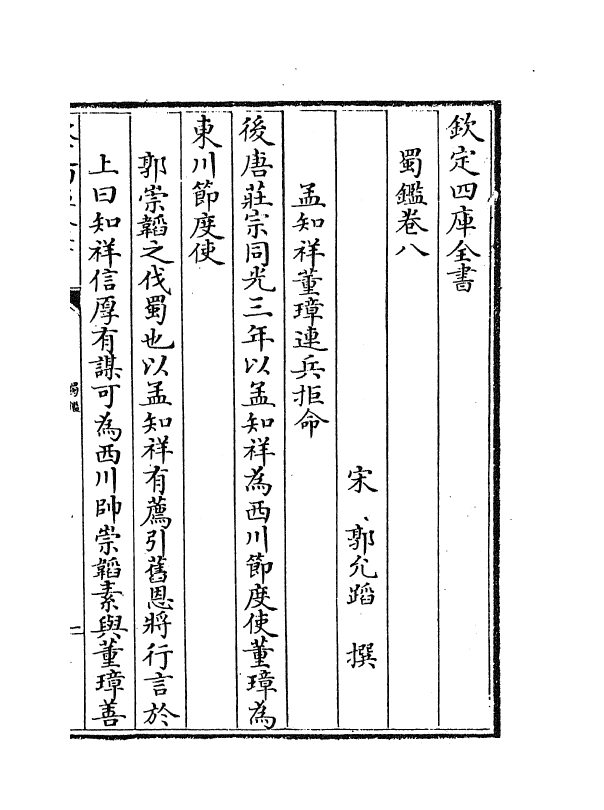 欽定四庫全書
蜀鑑卷八
宋 郭允蹈 撰
孟知祥董璋連兵拒命
後唐莊宗同光三年以孟知祥為西川節度使董璋為
東川節度使
郭崇韜之伐蜀也以孟知祥有薦引舊恩將行言於
上曰知祥信厚有謀可為西川帥崇韜素與董璋善
蜀鑑
一